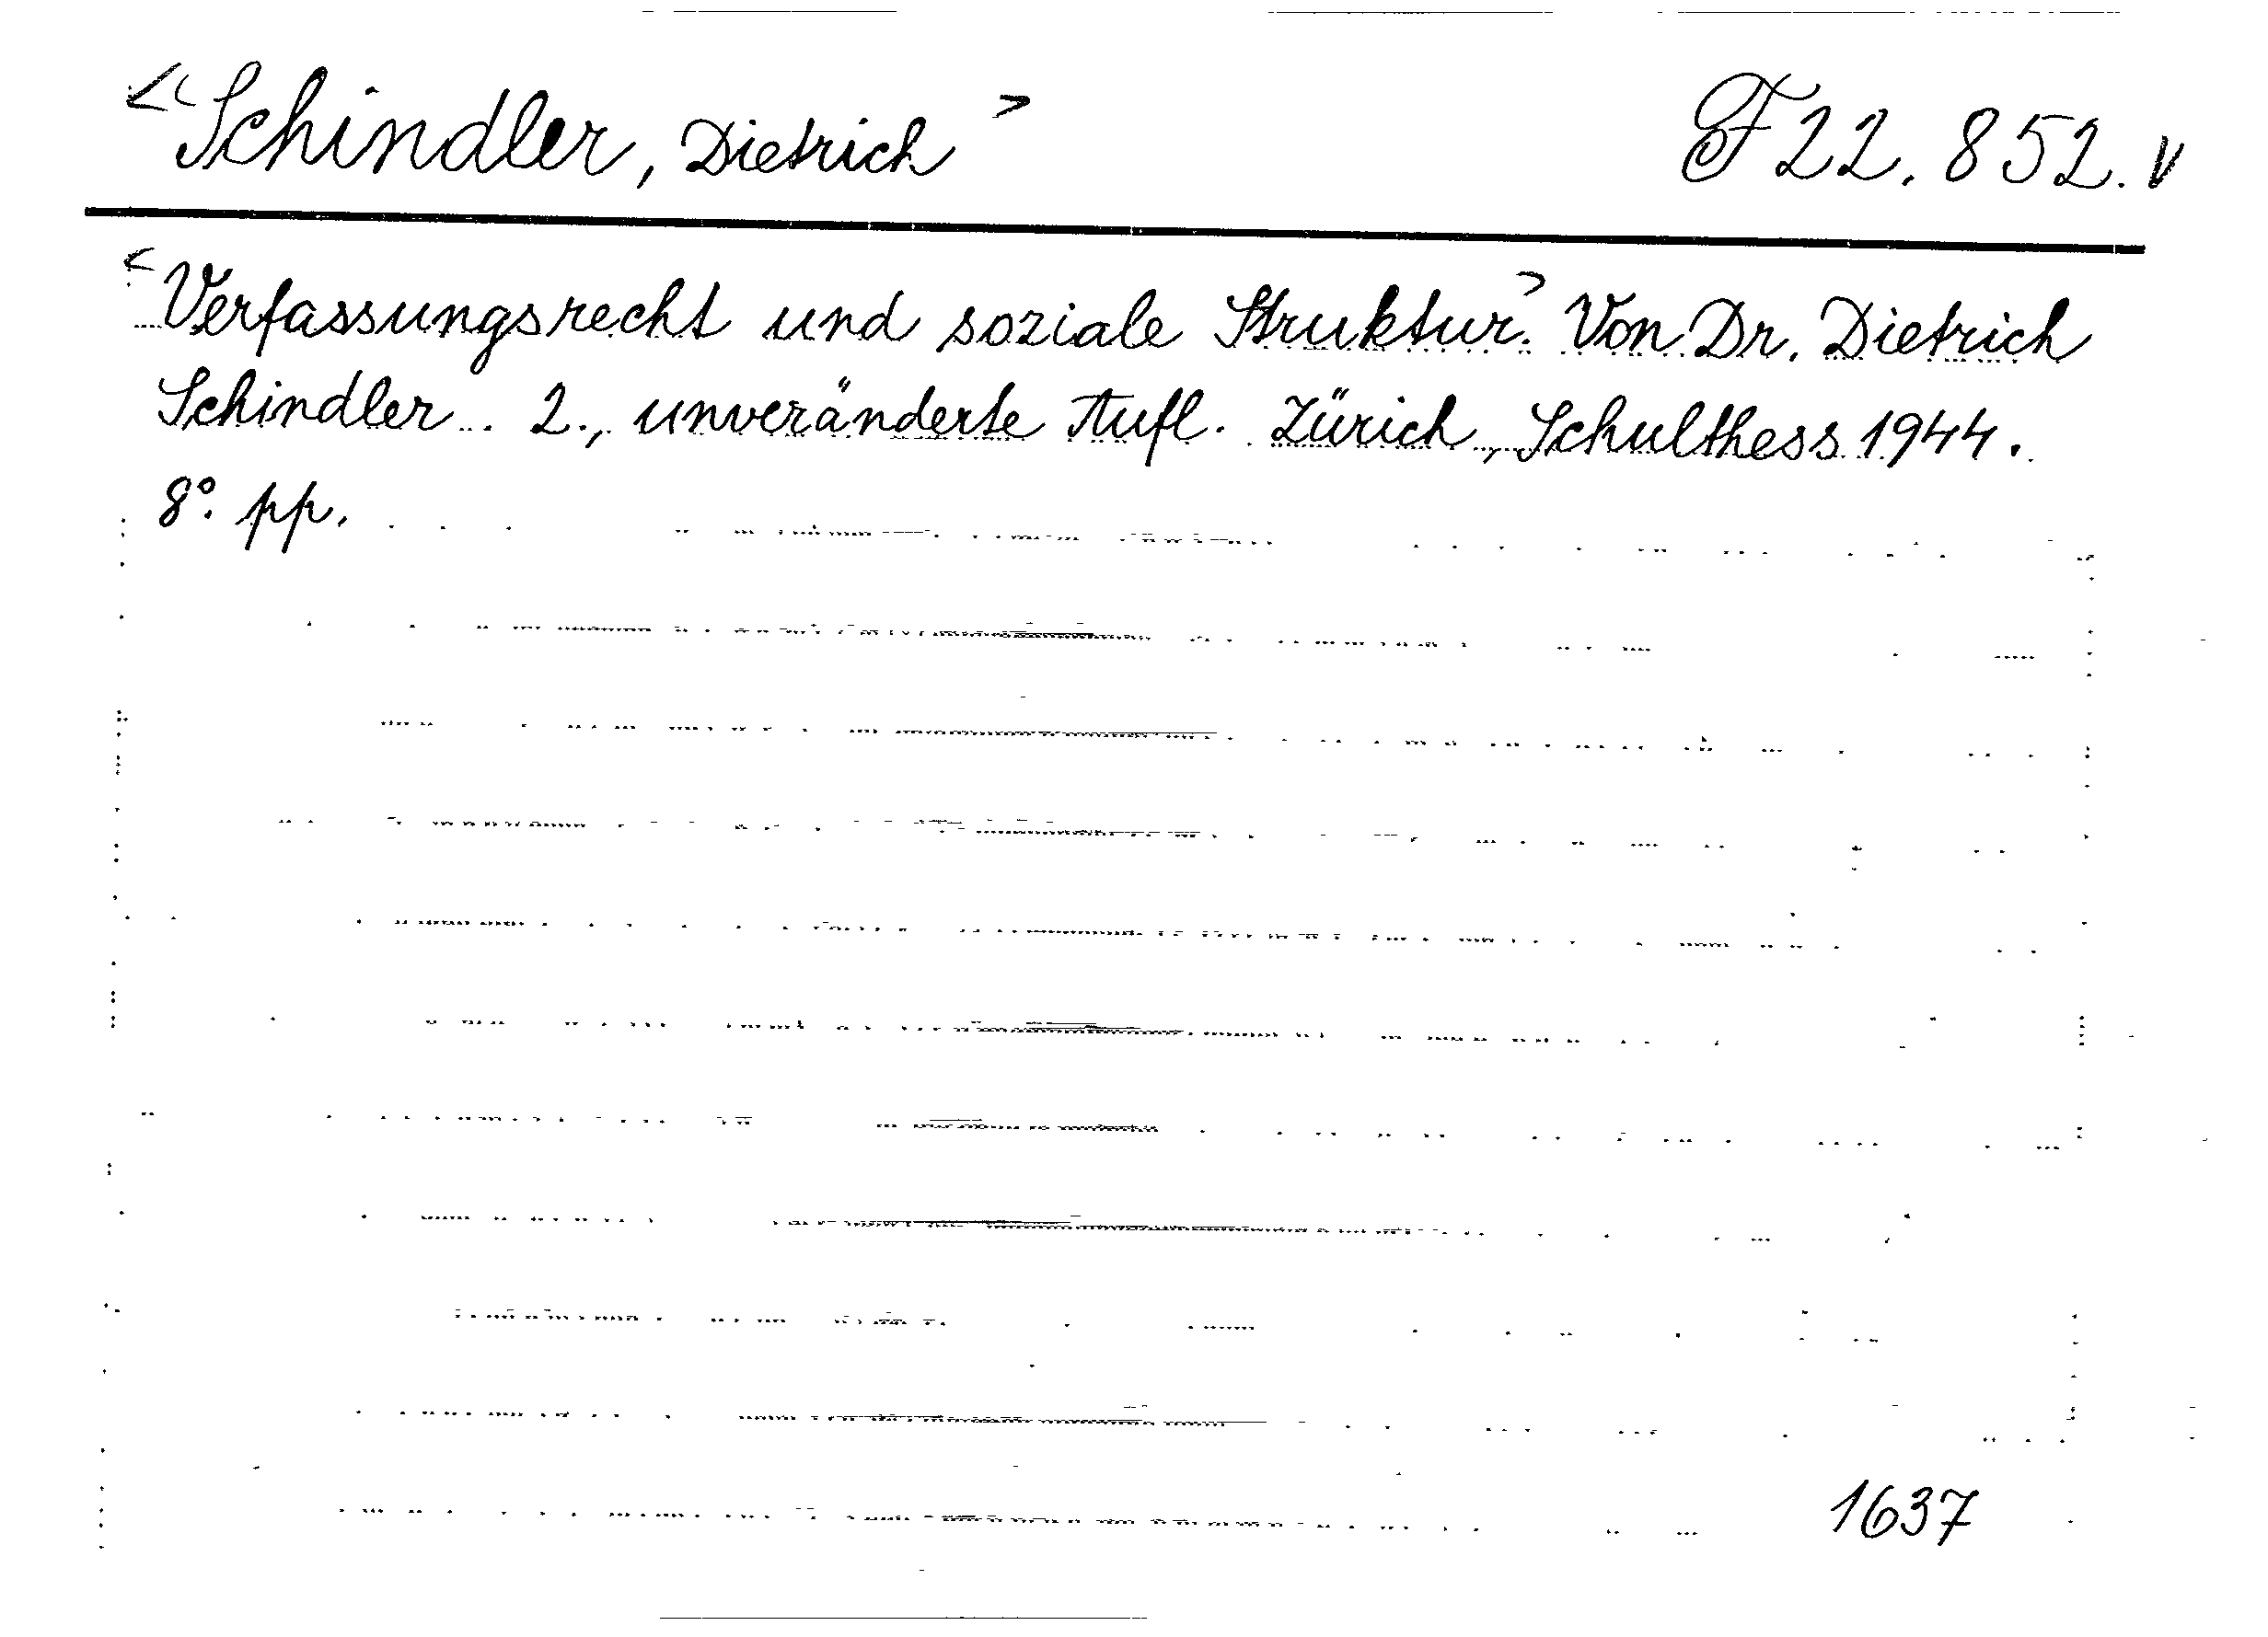 <Schindler, Dietrich> F 22.852. v
<Verfassungsrecht und soziale Struktur.> Von Dr. Dietrich
Schindler. 2., unveränderte Aufl. Zürich, Schulthess 1944.
8°. pp.
1637